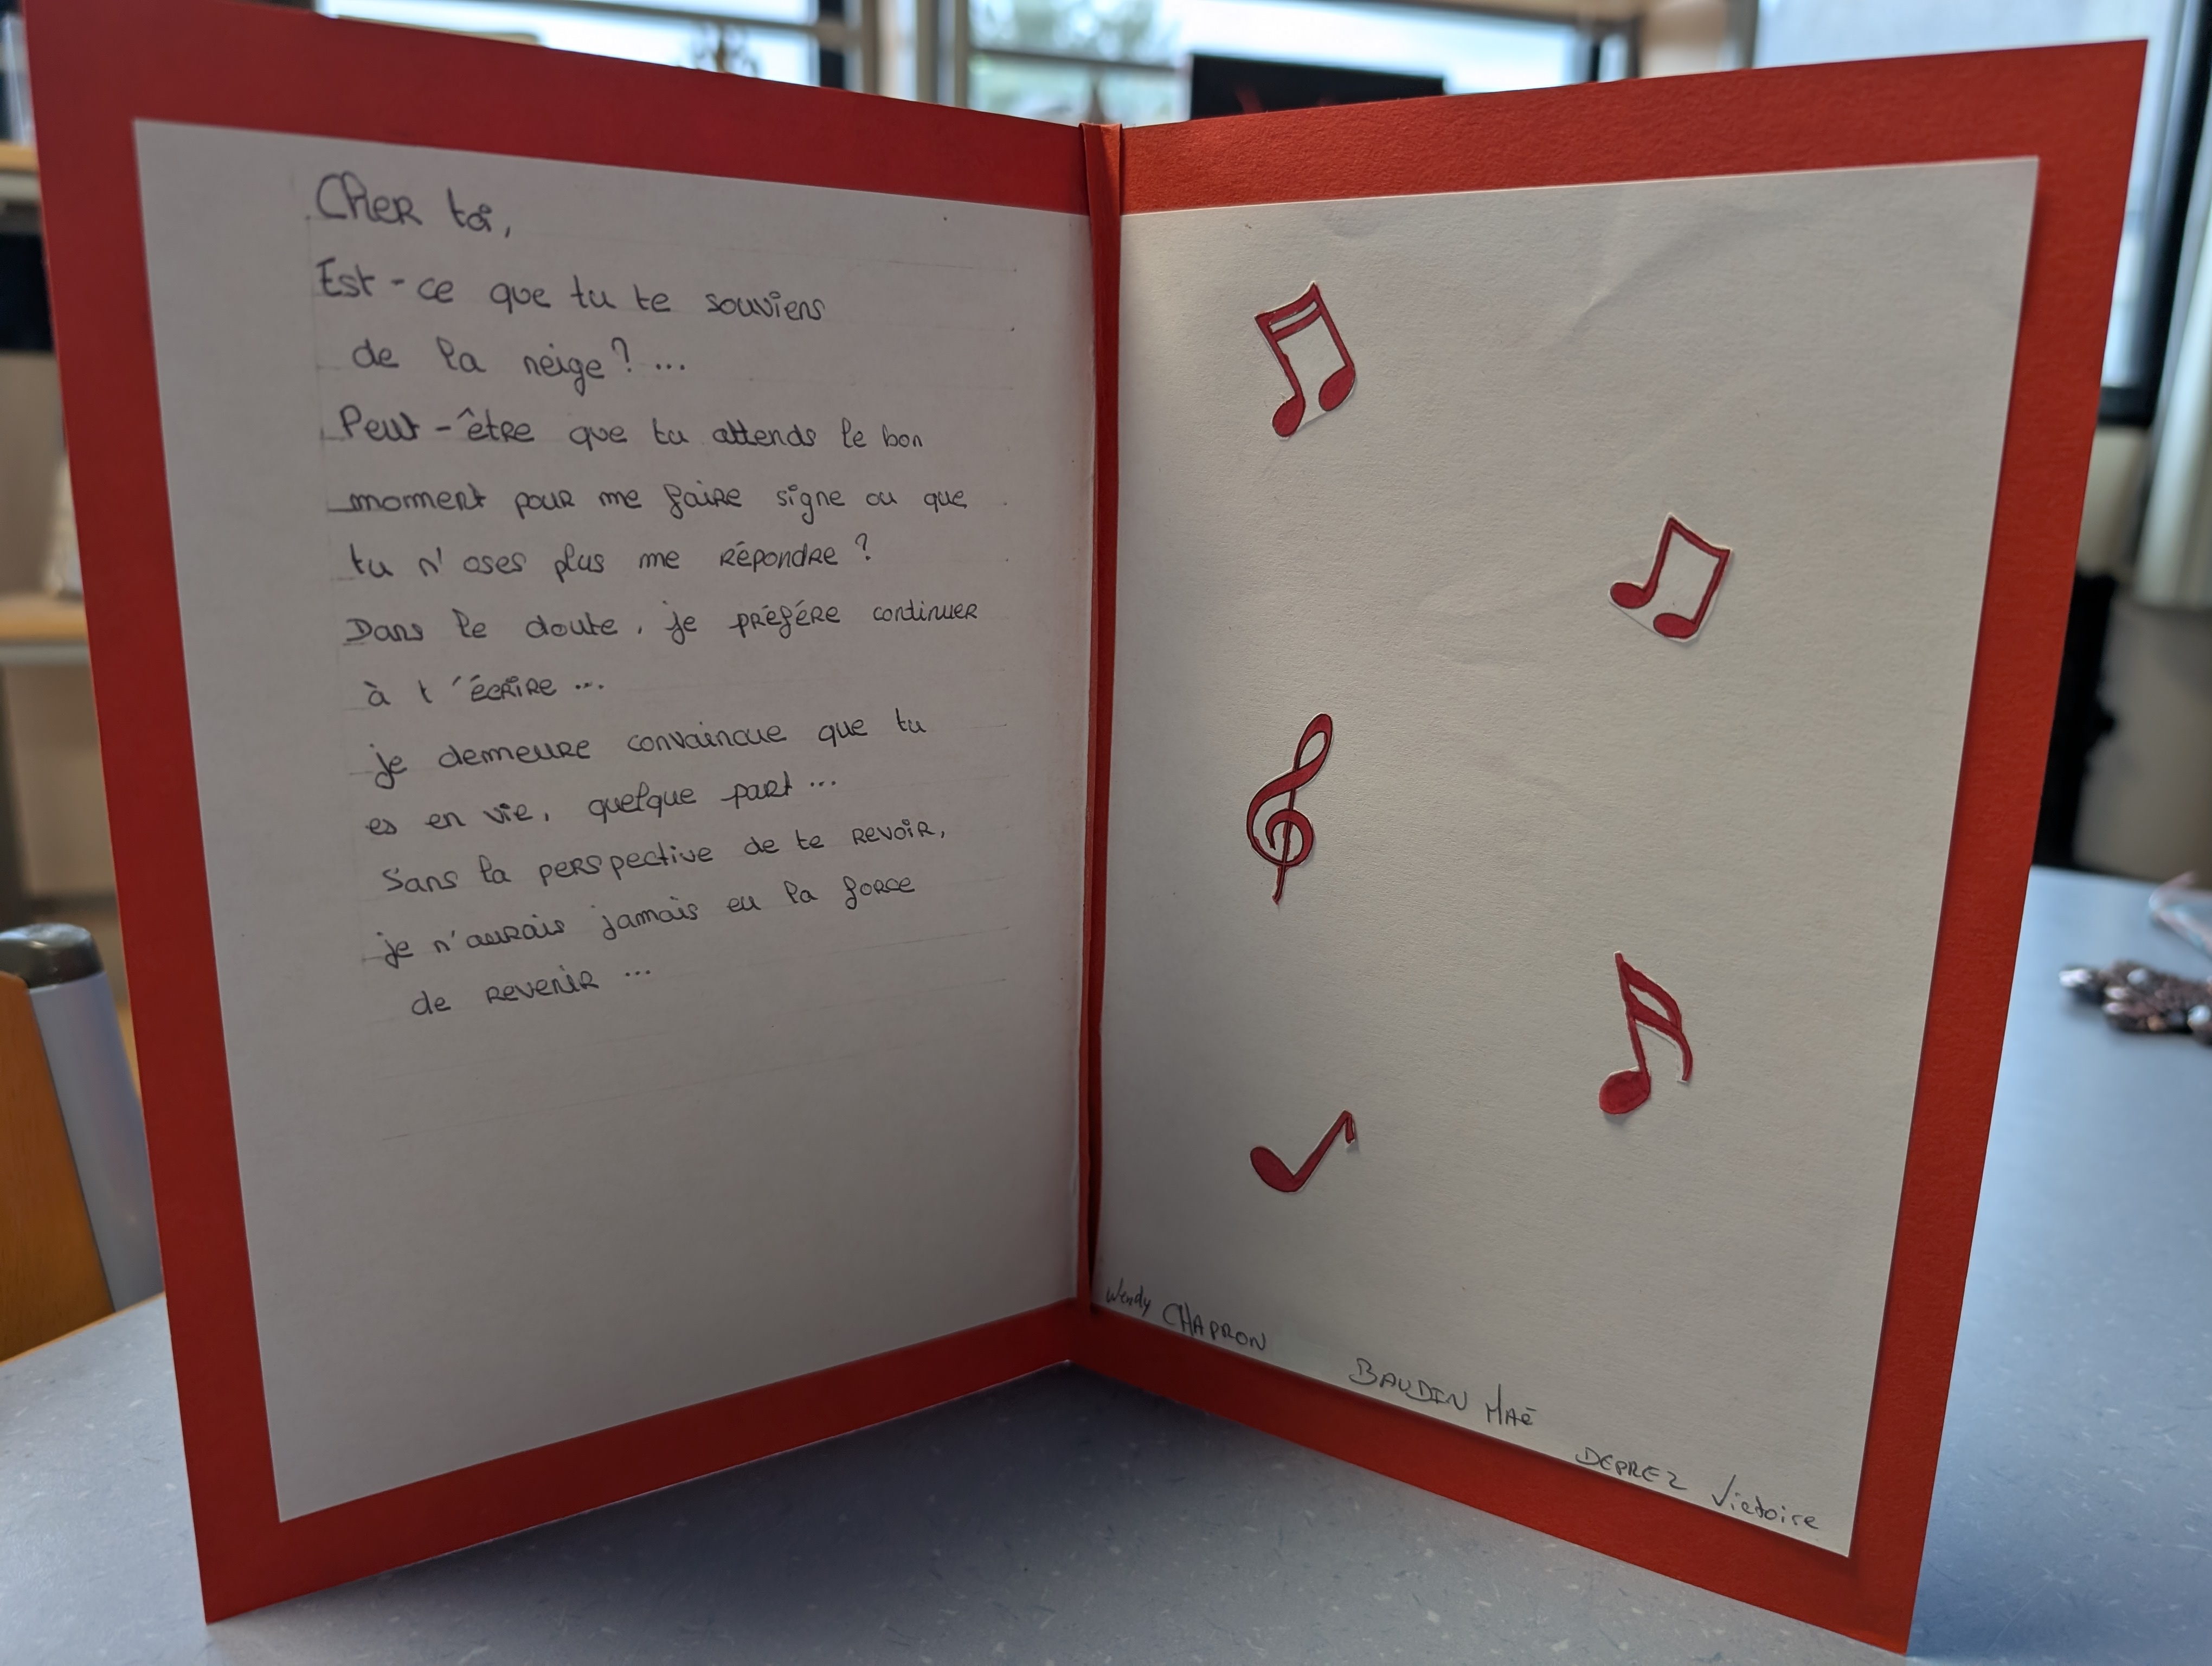 Cher toi,
Est-ce que tu te souviens
de la neige ? ...
Peut-être que tu attends le bon
moment pour me faire signe ou que
tu n'oses plus me répondre ?
Dans le doute, je préfère continuer
à t'écrire ...
je demeure convaincue que tu
es en vie, quelque part ...
Sans la perspective de te revoir,
je n'aurais jamais eu la force
de revenir ...
Wendy CHAPRON
BAUDIN MAÉ
DEPREZ Victoire